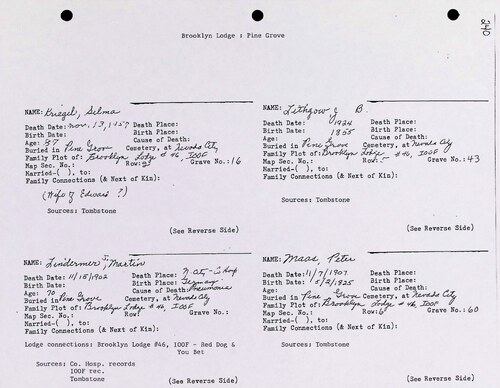 240
Brooklyn Lodge : Pine Grove
NAME: Kriegel, Selma
Death Date: Nov. 13, 195? Death Place:
Birth Date: Birth Place:
Age: 87 Cause of Death:
Buried in Pine Grove Cemetery, at Nevada City
Family Plot of: Brooklyn Lodge #46, IOOF
Map Sec. No.: Row: Grave No.: 16
Married-( ), to:
Family Connections (& Next of Kin):
(Wife of Edward ?)
Sources: Tombstone
(See Reverse Side)
NAME: Lithgow, B.
Death Date: 1924 Death Place:
Birth Date: 1855 Birth Place:
Age: Cause of Death:
Buried in Pine Grove Cemetery, at Nevada City
Family Plot of: Brooklyn Lodge #46, IOOF
Map Sec. No.: Row: 5 Grave No.: 43
Married-( ), to:
Family Connections (& Next of Kin):
Sources: Tombstone
(See Reverse Side)
NAME: Lindermer, Martin
Death Date: 11/15/1902 Death Place: N. City - Co Hosp
Birth Date: Birth Place: Germany
Age: 70 Cause of Death: Pneumonia
Buried in Pine Grove Cemetery, at Nevada City
Family Plot of: Brooklyn Lodge #46, IOOF
Map Sec. No.: Row: Grave No.:
Married-( ), to:
Family Connections (& Next of Kin):
Lodge connections: Brooklyn Lodge #46, IOOF - Red Dog &
You Bet
Sources: Co. Hosp. records
IOOF rec.
Tombstone
(See Reverse Side)
NAME: Maas, Peter
Death Date: 11/7/1907 Death Place:
Birth Date: 5/2/1825 Birth Place:
Age: Cause of Death:
Buried in Pine Grove Cemetery, at Nevada City
Family Plot of: Brooklyn Lodge #46, IOOF
Map Sec. No.: Row: 6 Grave No.: 60
Married-( ), to:
Family Connections (& Next of Kin):
Sources: Tombstone
(See Reverse Side)